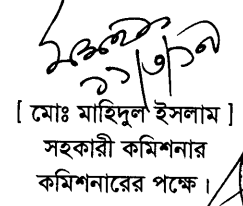 [ মোঃ মাহিদুল ইসলাম ]
সহকারী কমিশনার
কমিশনারের পক্ষে ।